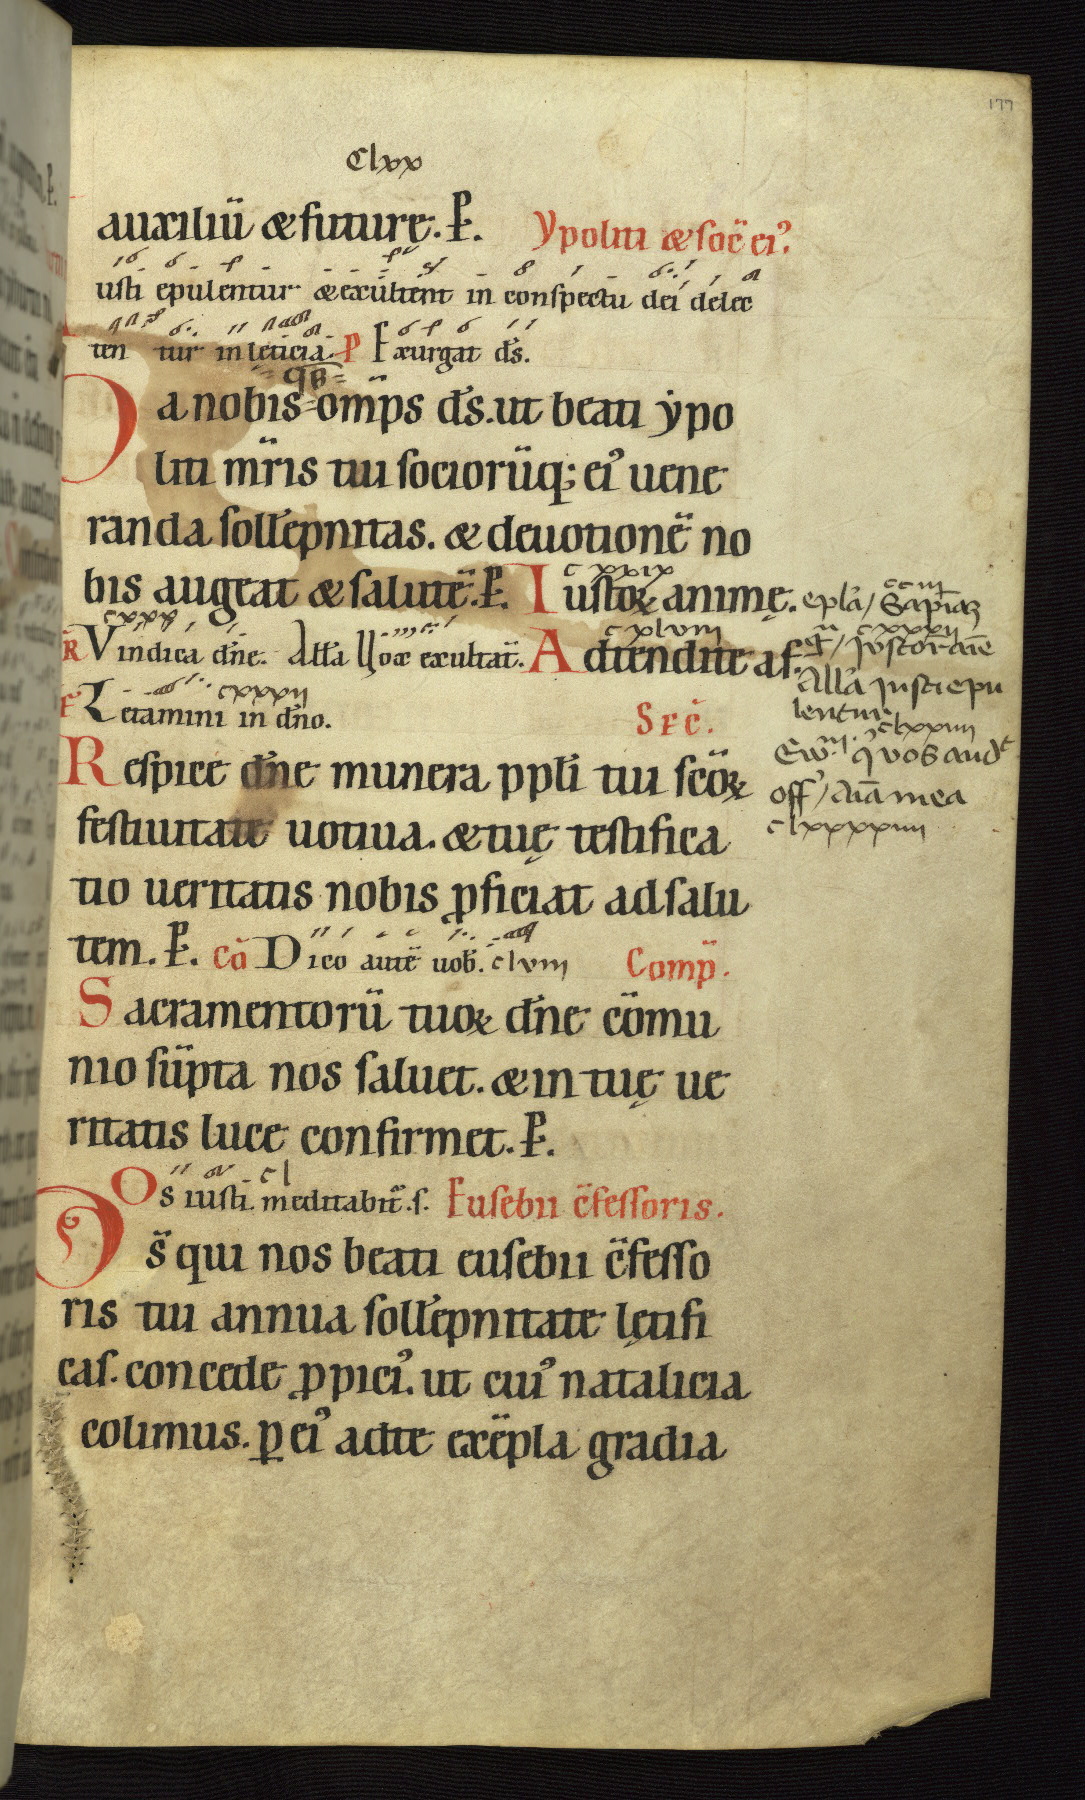 177
Clxx
auxiliū & future. P. Ypoliti & soc̄ ei᾽.
usti epulentur & exultent in conspectu dei delec
ten tur in lęticia. P Exurgat d̄s.
Da nobis om̄ps d̄s. ut beati ypo
liti m̄ris tui sociorūq; ei᾽ uene
randa soll̄epnitas. & deuotionē no
bis augeat & salutē. P. Iustoꝝ animę. epl̄a / Sapīaꝫ
cxxix
R Vindica dn̄e. All̄a Uox exultat̄. Adtendite a f.
cxlviii
Letamini in dn̄o. cxxxii
All̄a Justi epu
lentur
clxxiiii
q̇ vos aud᾽
off᾽ / Aīa mea
clxxxxiiii
Sec̄.
Respice dn̄e munera ppl̄i tui sc̄oꝝ
festiuitate uotiua. & tuę testifica
tio ueritatis nobis ꝓficiat ad salu
tem. P. Cō Dico autē uob̄. clviii Comp̄.
Sacramentorū tuoꝝ dn̄e cōmu
nio sūpta nos saluet. & in tuę ue
ritatis luce confirmet. P.
Os iusti meditabit̄. s. Eusebii c̄fessoris.
Ds̄ qui nos beati eusebii c̄fesso
ris tui annua soll̄epnitate lętifi
cas. concede ꝓpici᾽. ut cui᾽ natalicia
colimus. ꝑ ei᾽ ad te exēpla gradia